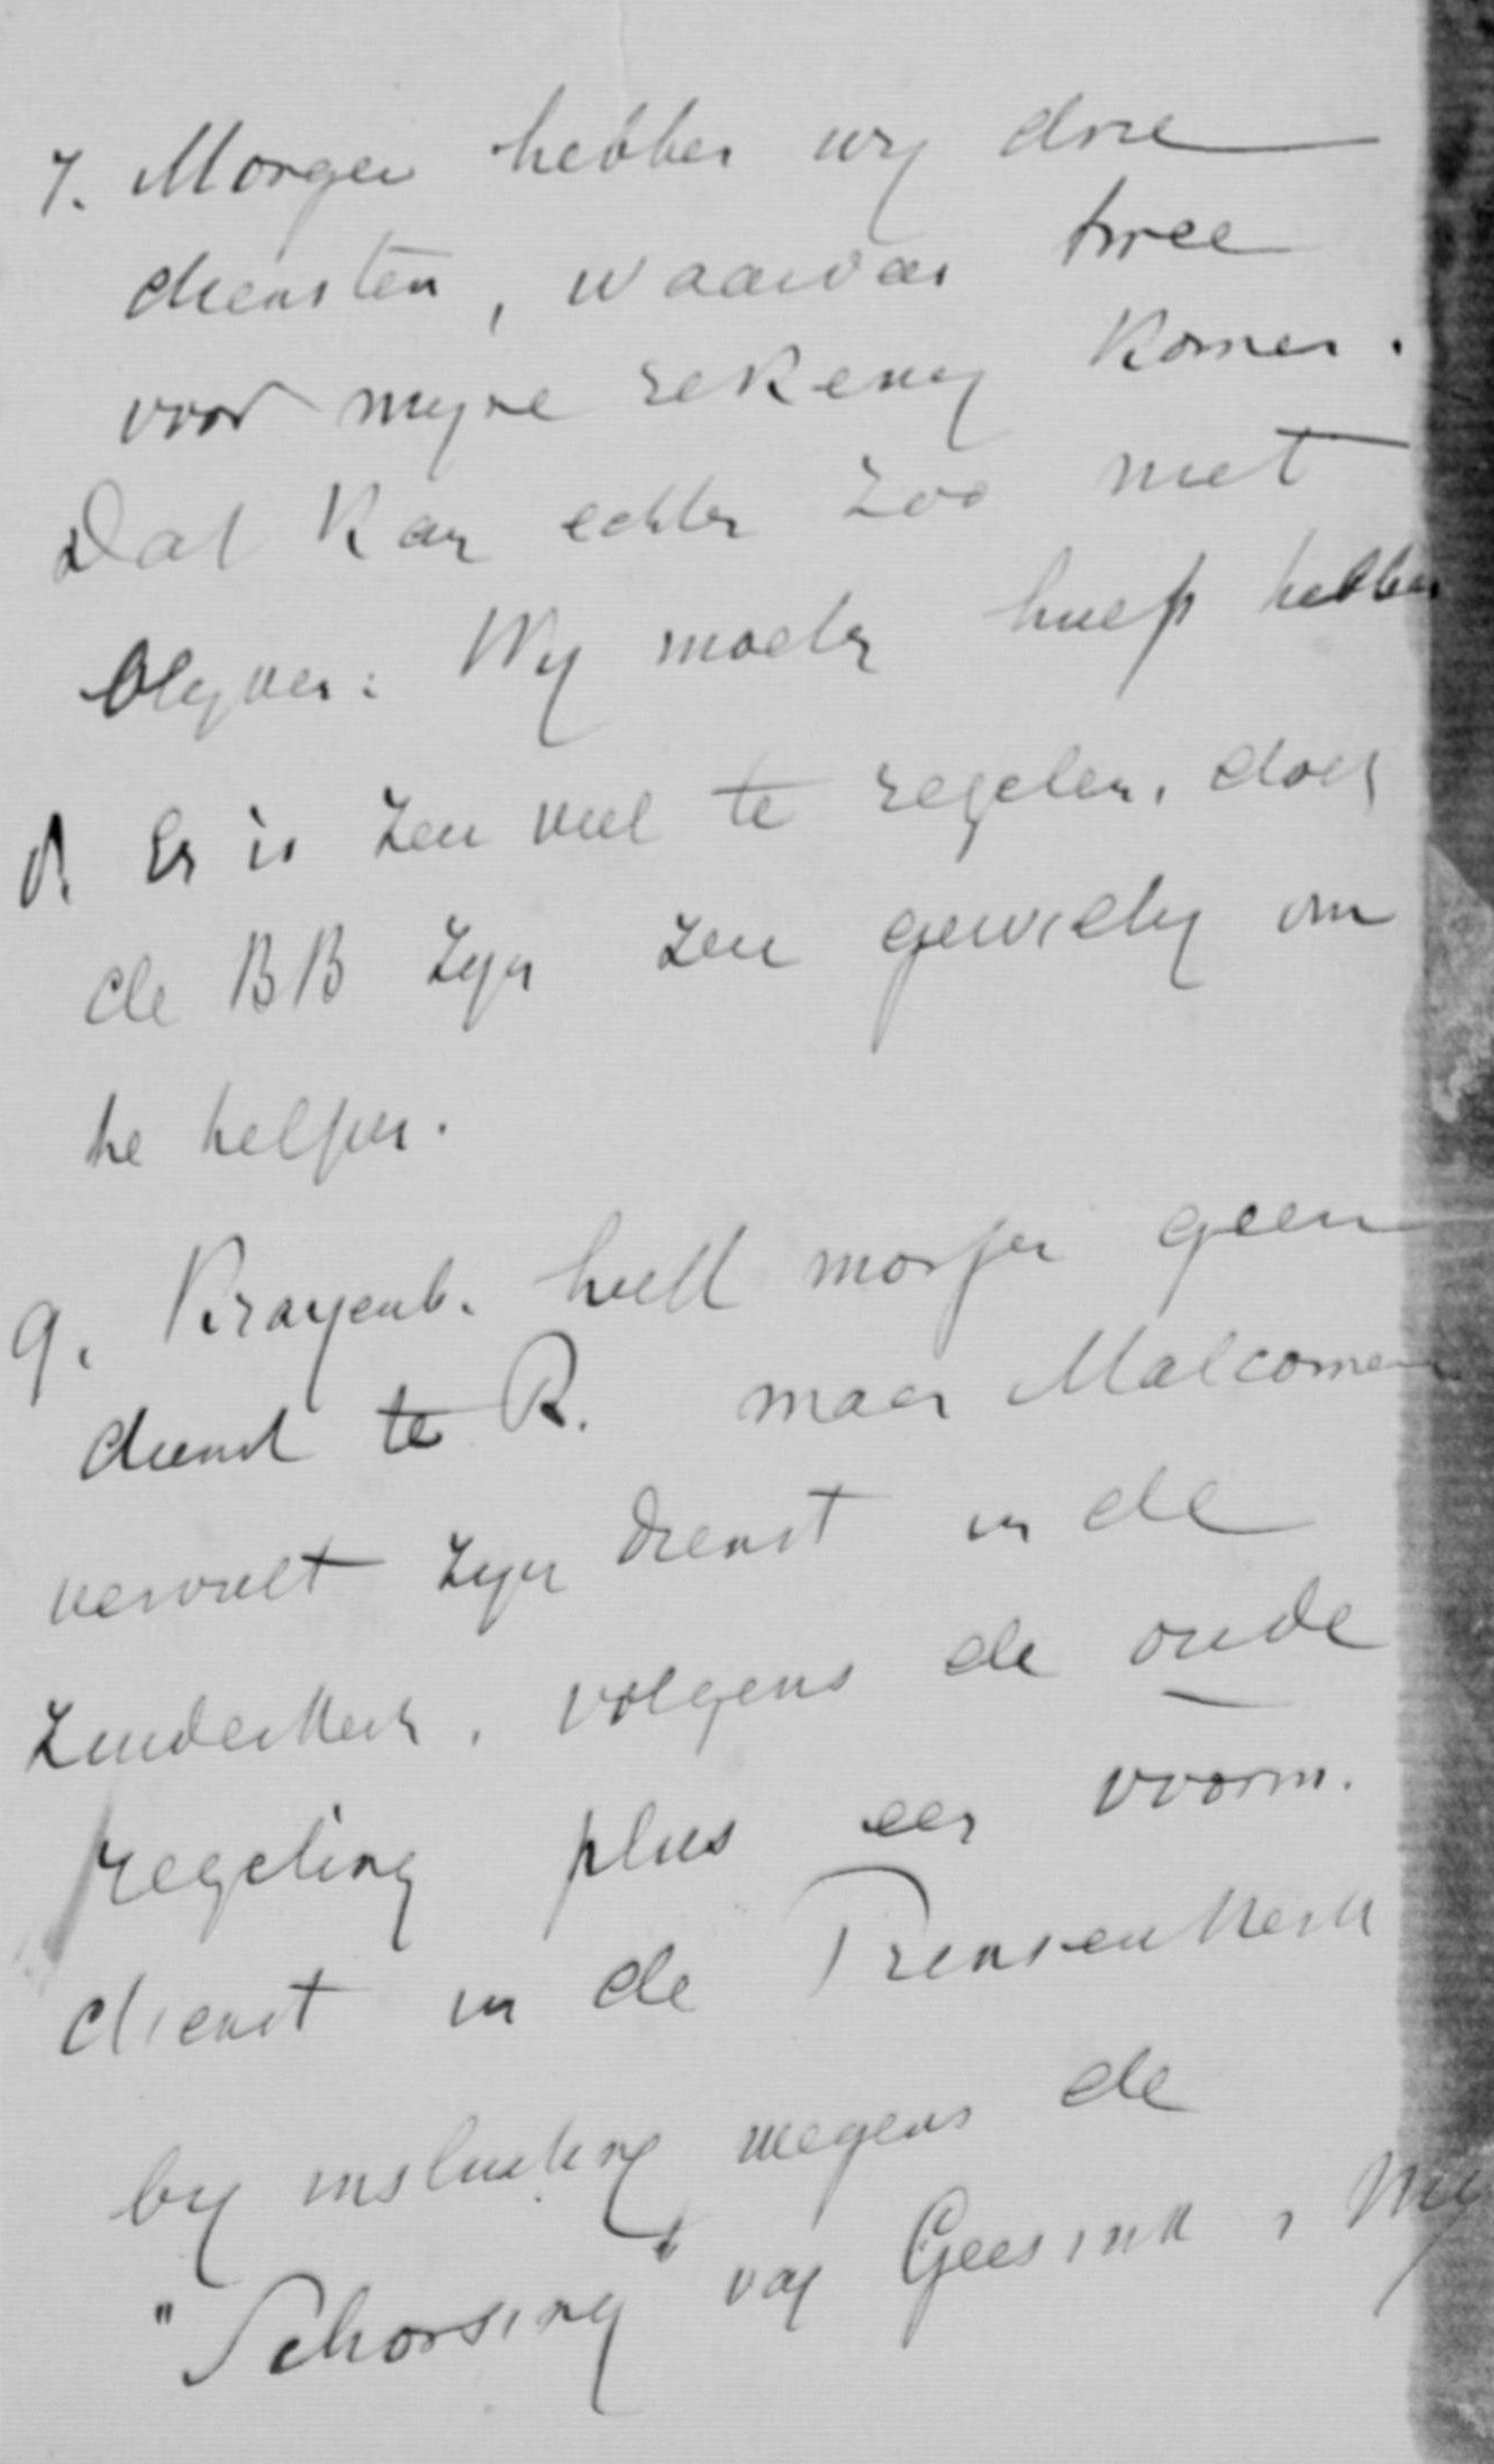 7. Morgen hebben wij drie
diensten, waarvan twee
voor mijne rekening komen.
Dat kan echter zoo niet
blijven. Wij moeten hulp hebben
8. Er is zeer veel te regelen, doch
de BB zijn zeer gewillig om
te helpen.
9. Krayenb. heeft morgen geen
dienst te R. maar Malcomen
vervult zijn dienst in de
Zuiderkerk, volgens de oude
regeling plus een voorm.
dienst in de Prinsenkerk
bij insluiting wegens de
"Schorsing" van Geesink,